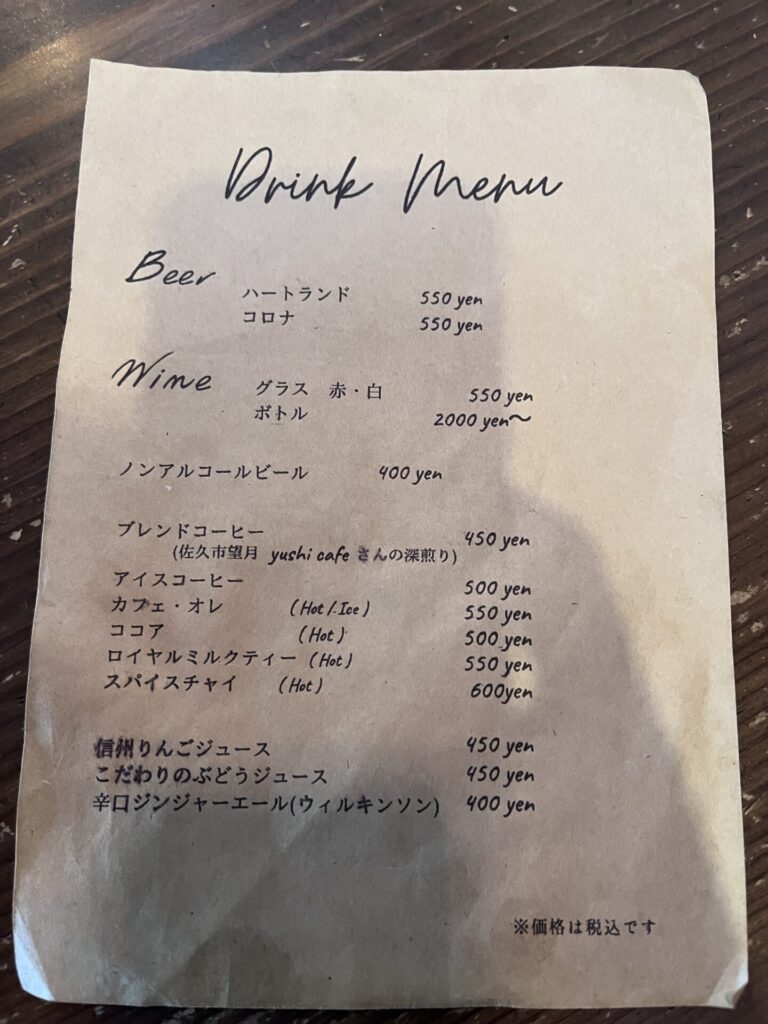 Drink Menu
Beer
ハートランド 550 yen
コロナ 550 yen
Wine
グラス 赤・白 550 yen
ボトル 2000 yen〜
ノンアルコールビール 400 yen
ブレンドコーヒー 450 yen
(佐久市望月 yushi cafe さんの深煎り)
アイスコーヒー 500 yen
カフェ・オレ (Hot / Ice) 550 yen
ココア (Hot) 500 yen
ロイヤルミルクティー (Hot) 550 yen
スパイスチャイ (Hot) 600yen
信州りんごジュース 450 yen
こだわりのぶどうジュース 450 yen
辛口ジンジャーエール(ウィルキンソン) 400 yen
※価格は税込です